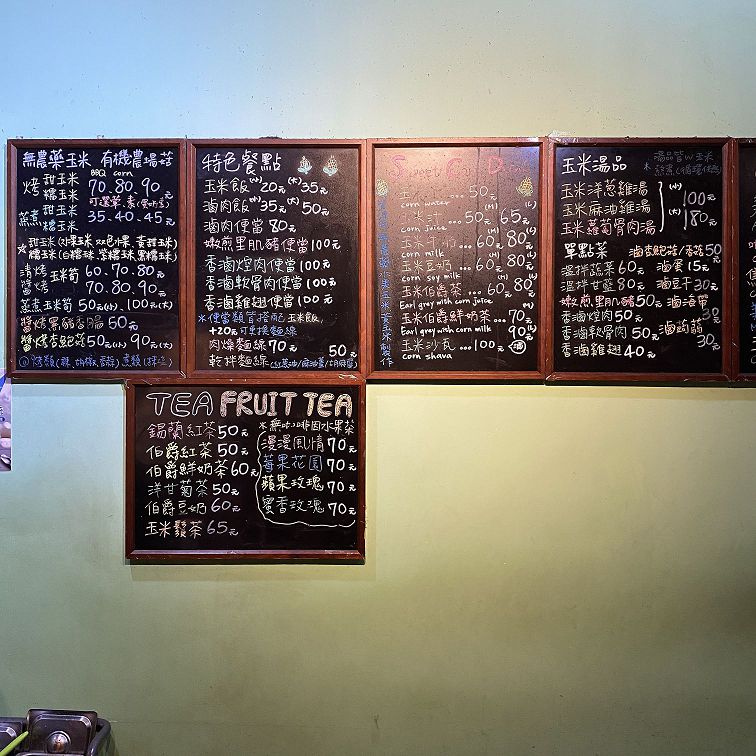 無農藥玉米 有機農場菇
BBQ corn
烤 甜玉米 糯玉米 70.80.90元
可選單.煮(要奶香)
蒸煮 甜玉米 糯玉米 35.40.45元
甜玉米(水果玉米 双色水果、黃甜玉米)
糯玉米(白糯玉米、紫糯玉米、黑糯玉米)
清烤 醬烤 玉米筍 60.70.80元 70.80.90元
蒸煮玉米筍50元(小)、100元(大)
醬烤黑豬香腸50元
醬烤杏鮑菇50元(小)90元(大)
特色餐點
玉米飯(小)20元(大)35元
滷肉飯(小)35元(大)50元
滷肉便當80元
嫩煎里肌豬便當100元
香滷焢肉便當100元
香滷軟骨肉便當100元
香滷雞翅便當100元
※便當類皆搭配玉米飯,
+20元可換麵線
肉燥麵線70元
乾拌麵線50元
玉 50元
corn water
玉米汁...50元65元
corn juice
玉米牛奶...60元80元
corn milk
玉米豆奶...60元80元
corn soy milk
玉米伯爵茶...60元80元
Earl grey with corn juice
玉米伯爵鮮奶茶...70元90元
Earl grey with corn milk
玉米沙瓦...100元
corn shava
玉米湯品
湯品皆以玉米
玉米洋蔥雞湯
玉米麻油雞湯
玉米蘿蔔骨肉湯
(小)100元
(大)180元
單點菜
滷杏鮑菇/香菇50元
溫拌蔬菜60元 滷蛋15元
溫拌甘藍80元 滷豆干30元
嫩煎里肌豬50元 滷海帶30元
香滷焢肉50元
香滷軟骨肉50元 滷蒟蒻30元
香滷雞翅40元
TEA FRUIT TEA
錫蘭紅茶50元
伯爵紅茶50元
伯爵鮮奶茶60元
洋甘菊茶50元
伯爵豆奶60元
玉米鬚茶65元
※無咖啡因水果茶
漫漫風情70元
莓果花園70元
蘋果玫瑰70元
蜜香玫瑰70元